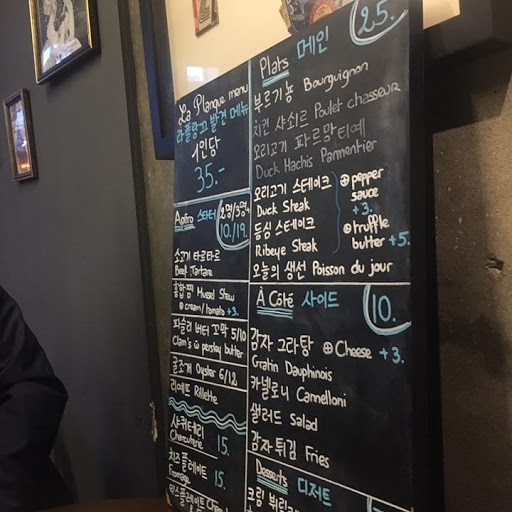 La Planque menu
라플랑끄 발견 메뉴
1인당
35.-
Apéro 스타터
10./19.
소고기 타르타르
Beef Tartare
홍합찜 Mussel Stew
⊕ cream/tomato +3.
파슬리 버터 꼬막 5/10
Clam's w persley butter
굴조개 Oyster 6/12
리에뜨 Rillette
샤퀴테리
Charcuterie 15.
치즈 플레이트
Fromage 15.
믹스플레이트
Plats 메인 25.
부르기뇽 Bourguignon
치킨 샤쇠르 Poulet chasseur
오리고기 파르망티에
Duck Hachis Parmentier
오리고기 스테이크 ⊕ pepper sauce +3.
Duck Steak
등심 스테이크 ⊕ truffle butter +5.
Ribeye Steak
오늘의 생선 Poisson du jour
À Côté 사이드 10.
감자 그라탕 ⊕ Cheese +3.
Gratin Dauphinois
카넬로니 Cannelloni
샐러드 Salad
감자튀김 Fries
Desserts 디저트
크림 뷔릴레